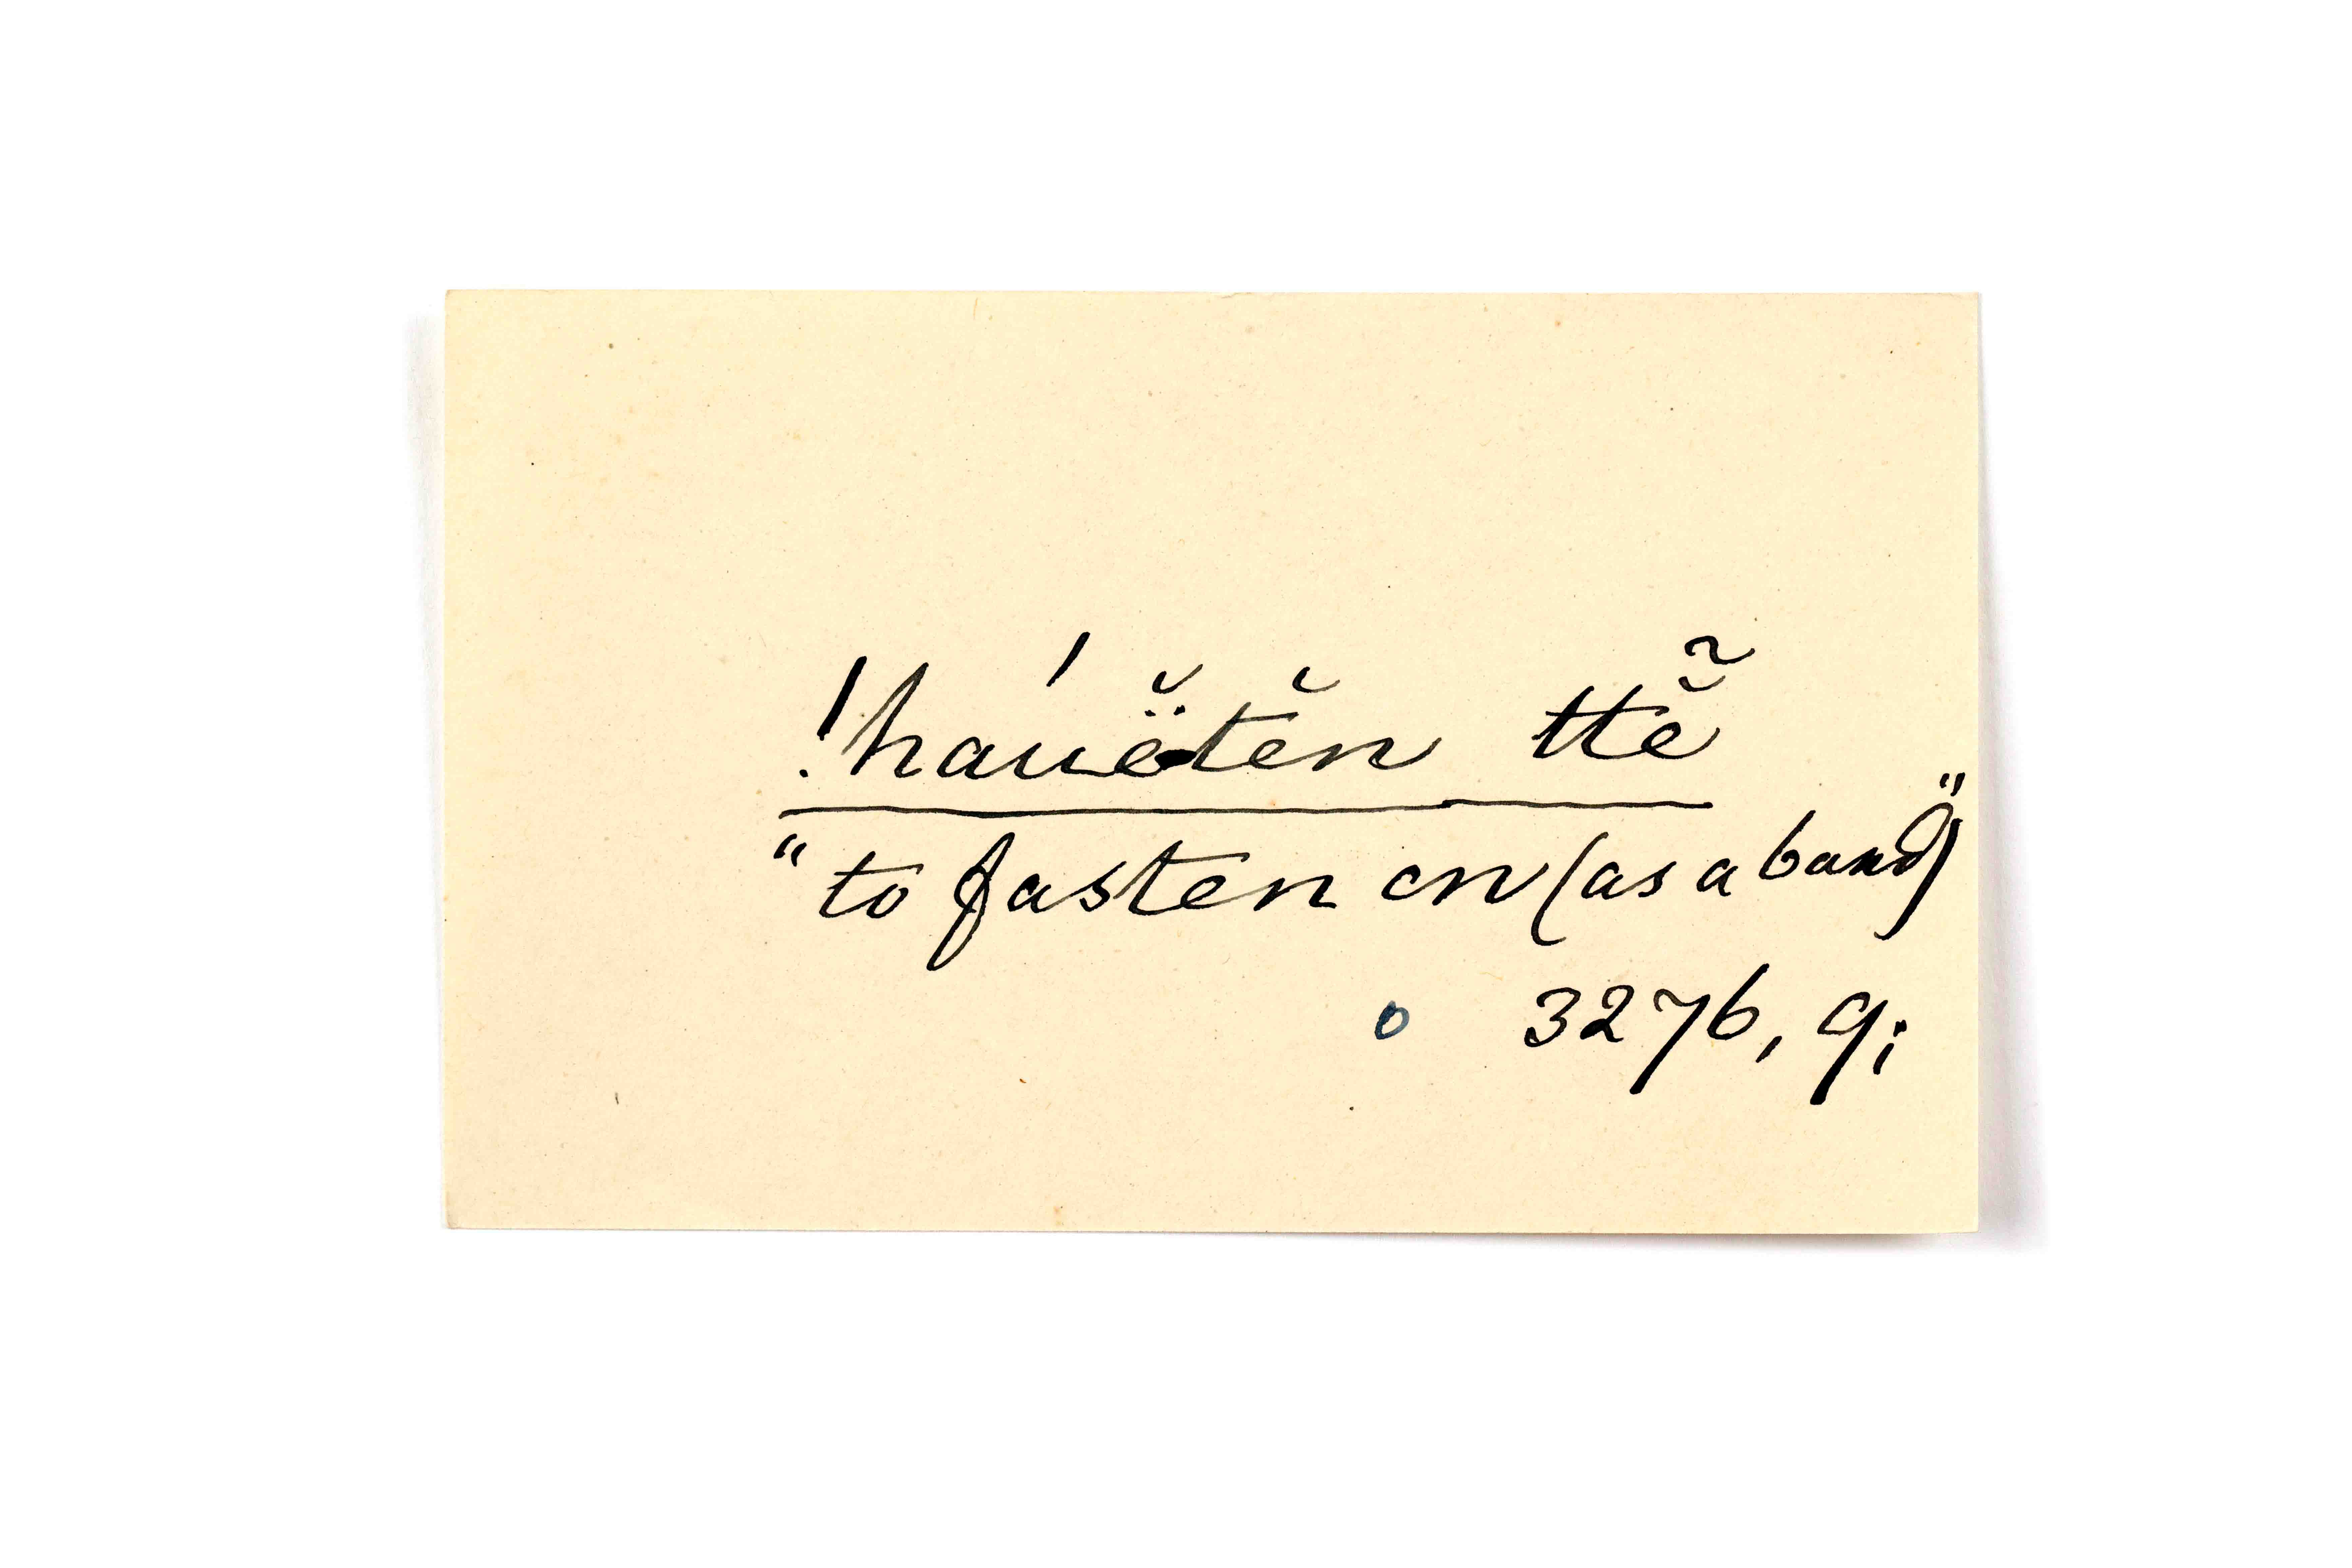 !háuë̆tĕn ttẽ̆
"to fasten on (as a band)"
o 3276, 9;